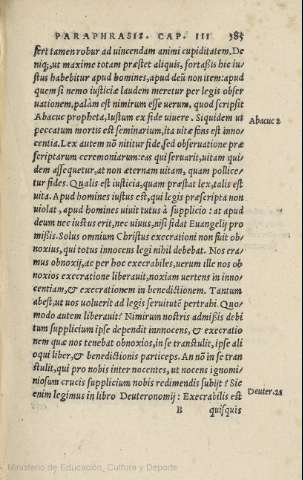 PARAPHRASIS. CAP. III 385
fert tamen robur ad uincendam animi cupiditatem. De
niq; ut maxime totam præstet aliquis, fortaßis hic iu⸗
stus habebitur apud homines, apud deū non item: apud
quem si nemo iusticiæ laudem meretur per legis obser
uationem, palàm est nimirum esse uerum, quod scripsit
Abacuc propheta, Iustum ex fide uiuere. Siquidem ut
Abacuc 2
peccatum mortis est seminarium, ita uitæ fons est inno⸗
centia. Lex autem nō nititur fide, sed obseruatione præ
scriptarum ceremoniarum: eas qui seruarit, uitam qui⸗
dem assequetur, at non æternam uitam, quam pollice⸗
tur fides. Qualis est iusticia, quam præstat lex, talis est
uita. Apud homines iustus est, qui legis præscripta non
uiolat, apud homines uiuit tutus à supplicio: at apud
deum nec iustus erit, nec uiuus, nisi fidat Euangelij pro
mißis. Solus omnium Christus execrationi non fuit ob⸗
noxius, qui totus innocens legi nihil debebat. Nos era⸗
mus obnoxij, ac per hoc execrabiles, uerum ille nos ob
noxios execratione liberauit, noxiam uertens in inno⸗
centiam, & execrationem in benedictionem. Tantum
abest, ut uos uoluerit ad legis seruitutē pertrahi. Quo⸗
modo autem liberauit? Nimirum nostris admißis debi
tum supplicium ipse dependit innnocens, & execratio
nem quæ nos tenebat obnoxios, in se trāstulit, ipse ali
oqui liber, & benedictionis particeps. An nō in se tran
stulit, qui pro nobis inter nocentes, ut nocens ignomi⸗
niosum crucis supplicium nobis redimendis subijt? Sic
enim legimus in libro Deuteronomij: Execrabilis est
Deuter. 21
B quisquis
Ministerio de Educación, Cultura y Deporte